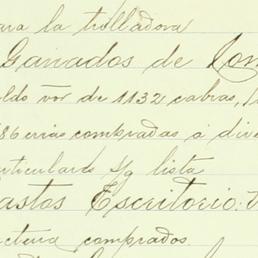 ara la trilladora
Ganados de Con
ldo por de 1132 cabras,
86 crias compradas a div
rticulares s/g lista
astos Escritorio
ctera comprados